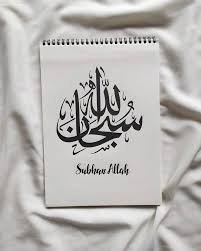 سبحان الله
Subhan Allah